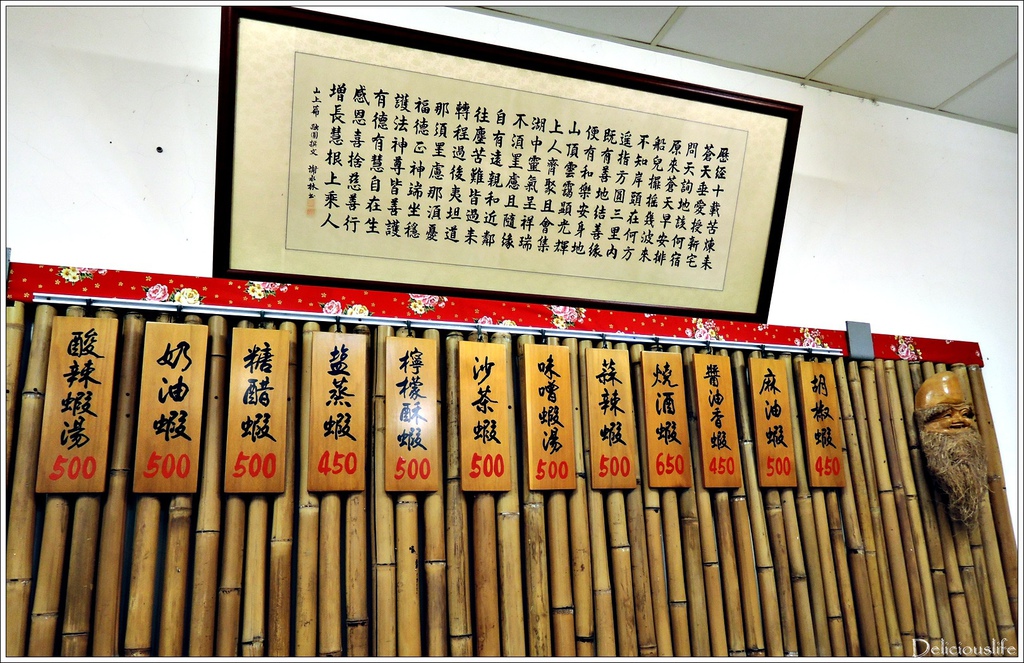 歷經十載苦煉未
蒼天垂愛授新宅
問天詢地該何宿
原來蒼天早安排
船兒搖搖幾波來
不知岸頭在何方
遥指方圓三里內
既有善地結善緣
便有和樂安身地
山頂雲靄顯光輝
上人齊聚且會集
湖中靈氣呈祥瑞
不須里慮且隨緣
自有遠親和近鄰
往塵苦難皆過来
轉程過後夷坦道
那須里慮那須憂
福德正神端坐穩
護法神尊皆善護
有德有慧自在生
感恩喜捨慈善行
增長慧根上乘人
山上篇 融園撰文 謝永林書
酸辣蝦湯
500
奶油蝦
500
糖醋蝦
500
盐蒸蝦
450
檸檬酥蝦
500
沙茶蝦
500
味噌蝦湯
500
蒜辣蝦
500
燒酒蝦
650
醬油香蝦
450
麻油蝦
500
胡椒蝦
450
Deliciouslife